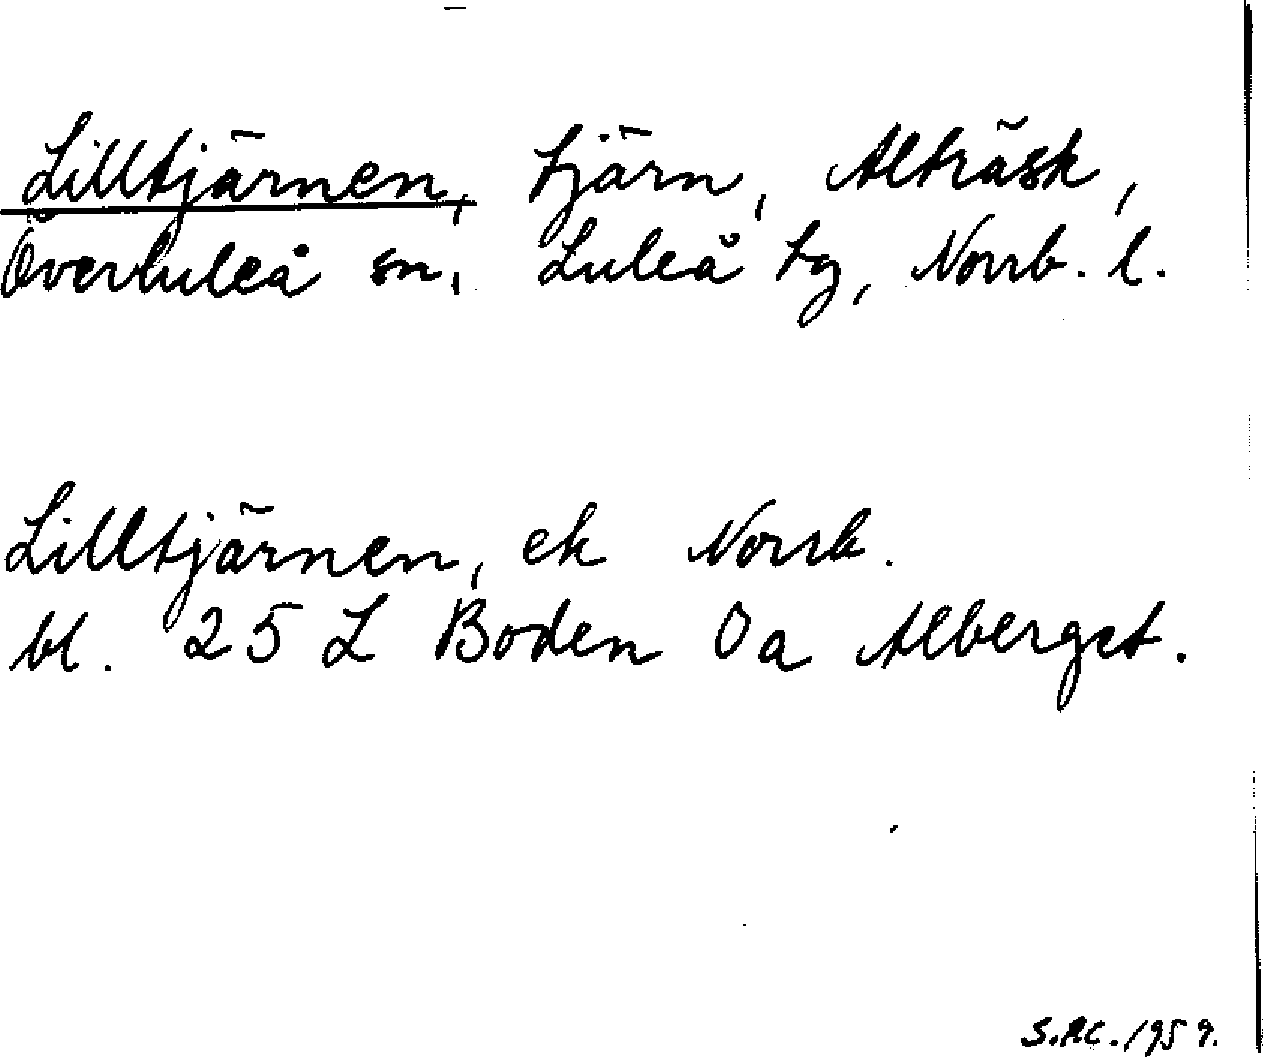 Lilltjärnen, tjärn, Alträsk,
Överluleå sn, Luleå tg, Norrb. l.
Lilltjärnen, ek Norrb.
bl. 25 L Boden 0a Alberget.
S.AC. 1959.